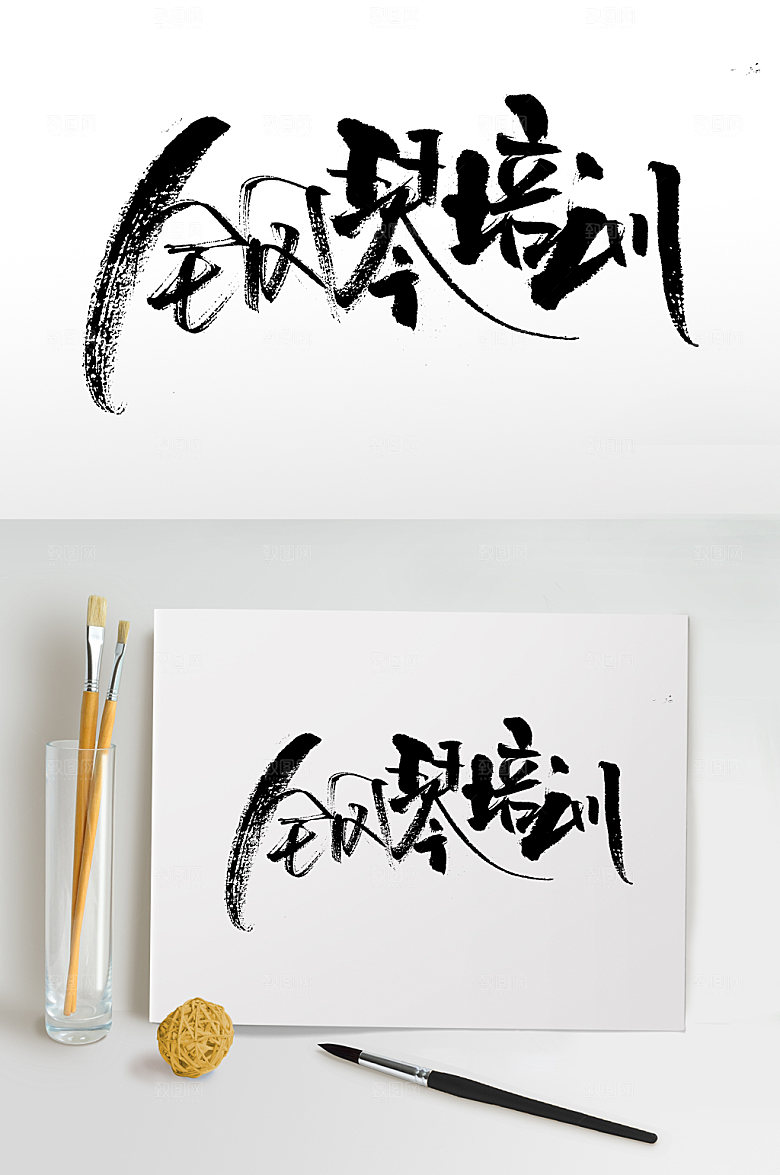 钢琴培训
钢琴培训